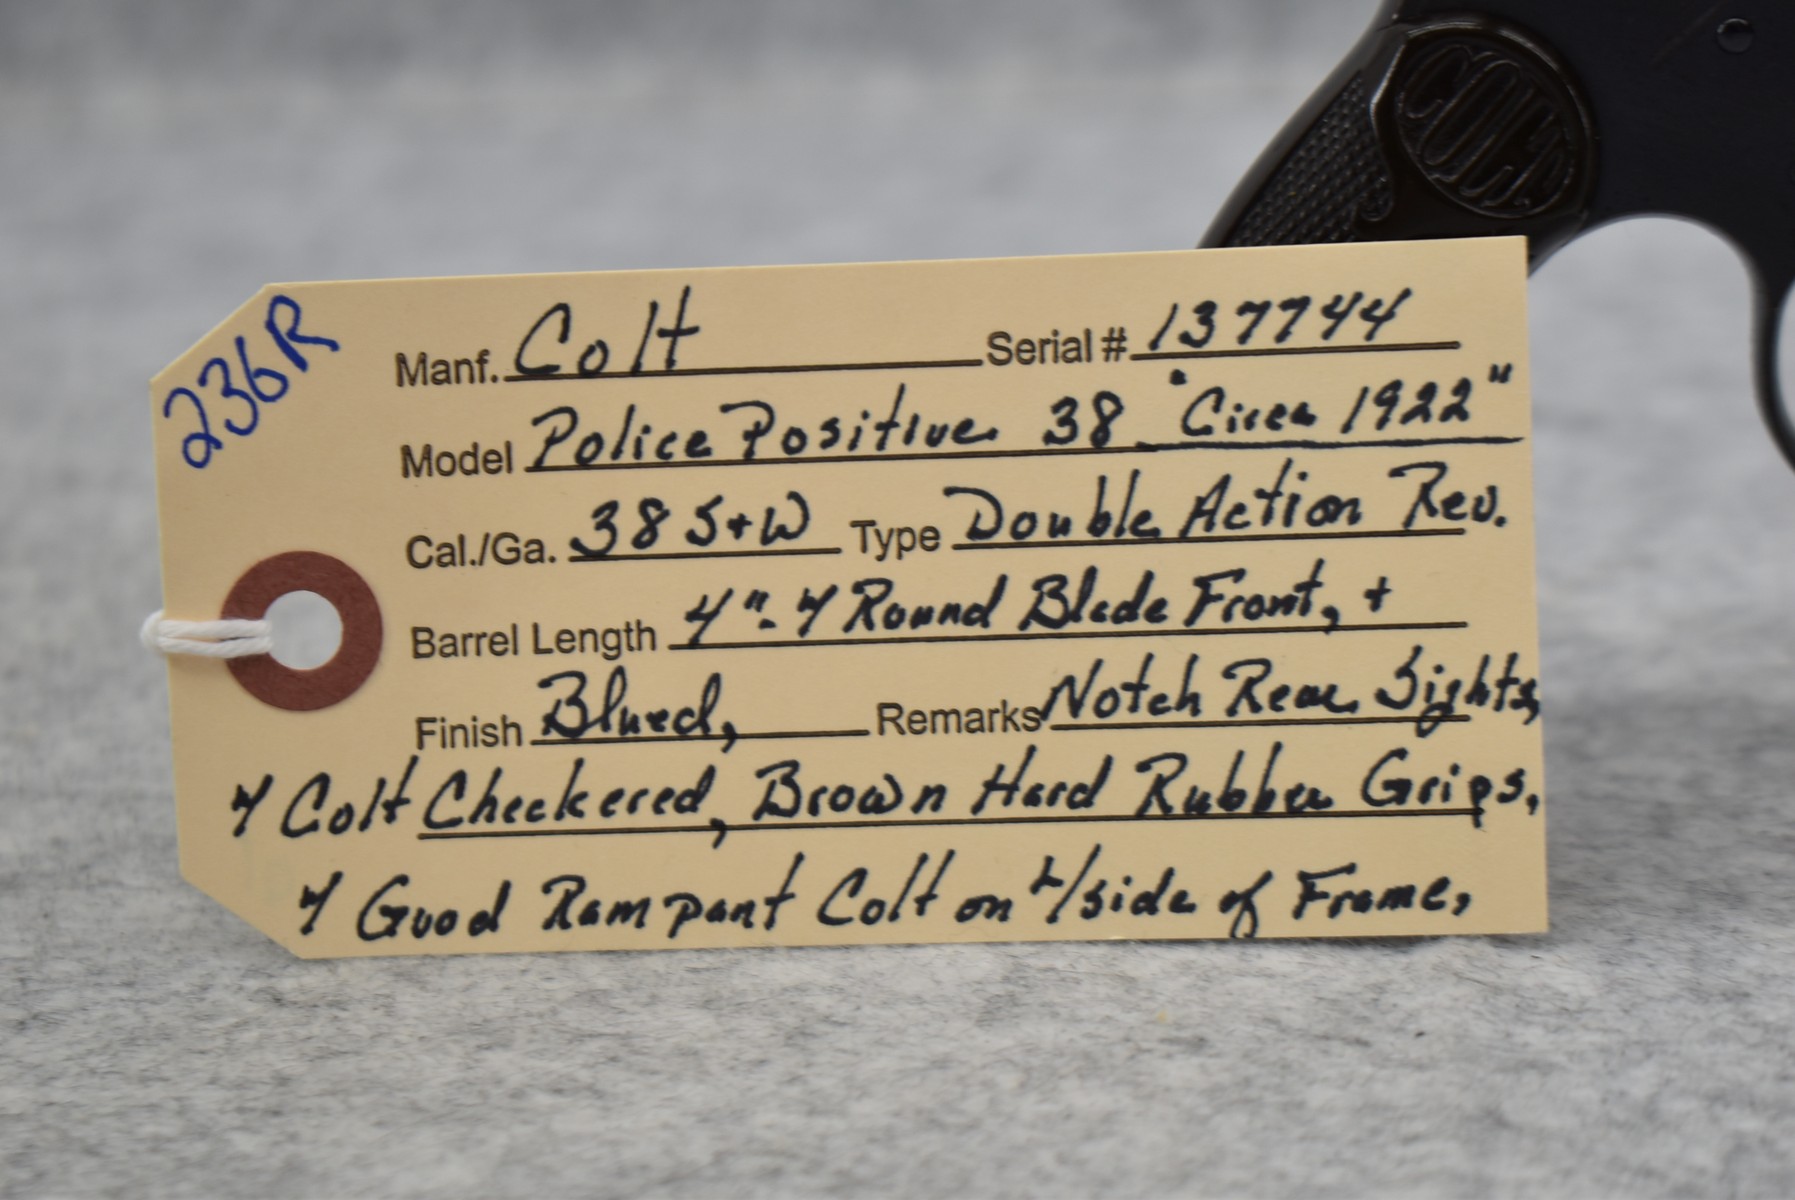 COLT
236R
Manf. Colt Serial # 137744
Model Police Positive 38 "Circa 1922"
Cal./Ga. 38 S+W Type Double Action Rev.
Barrel Length 4" - 4 Round Blade Front, +
Finish Blued, Remarks Notch Rear Sights,
4 Colt Checkered, Brown Hard Rubber Grips,
4 Good Rampant Colt on L/side of Frame,